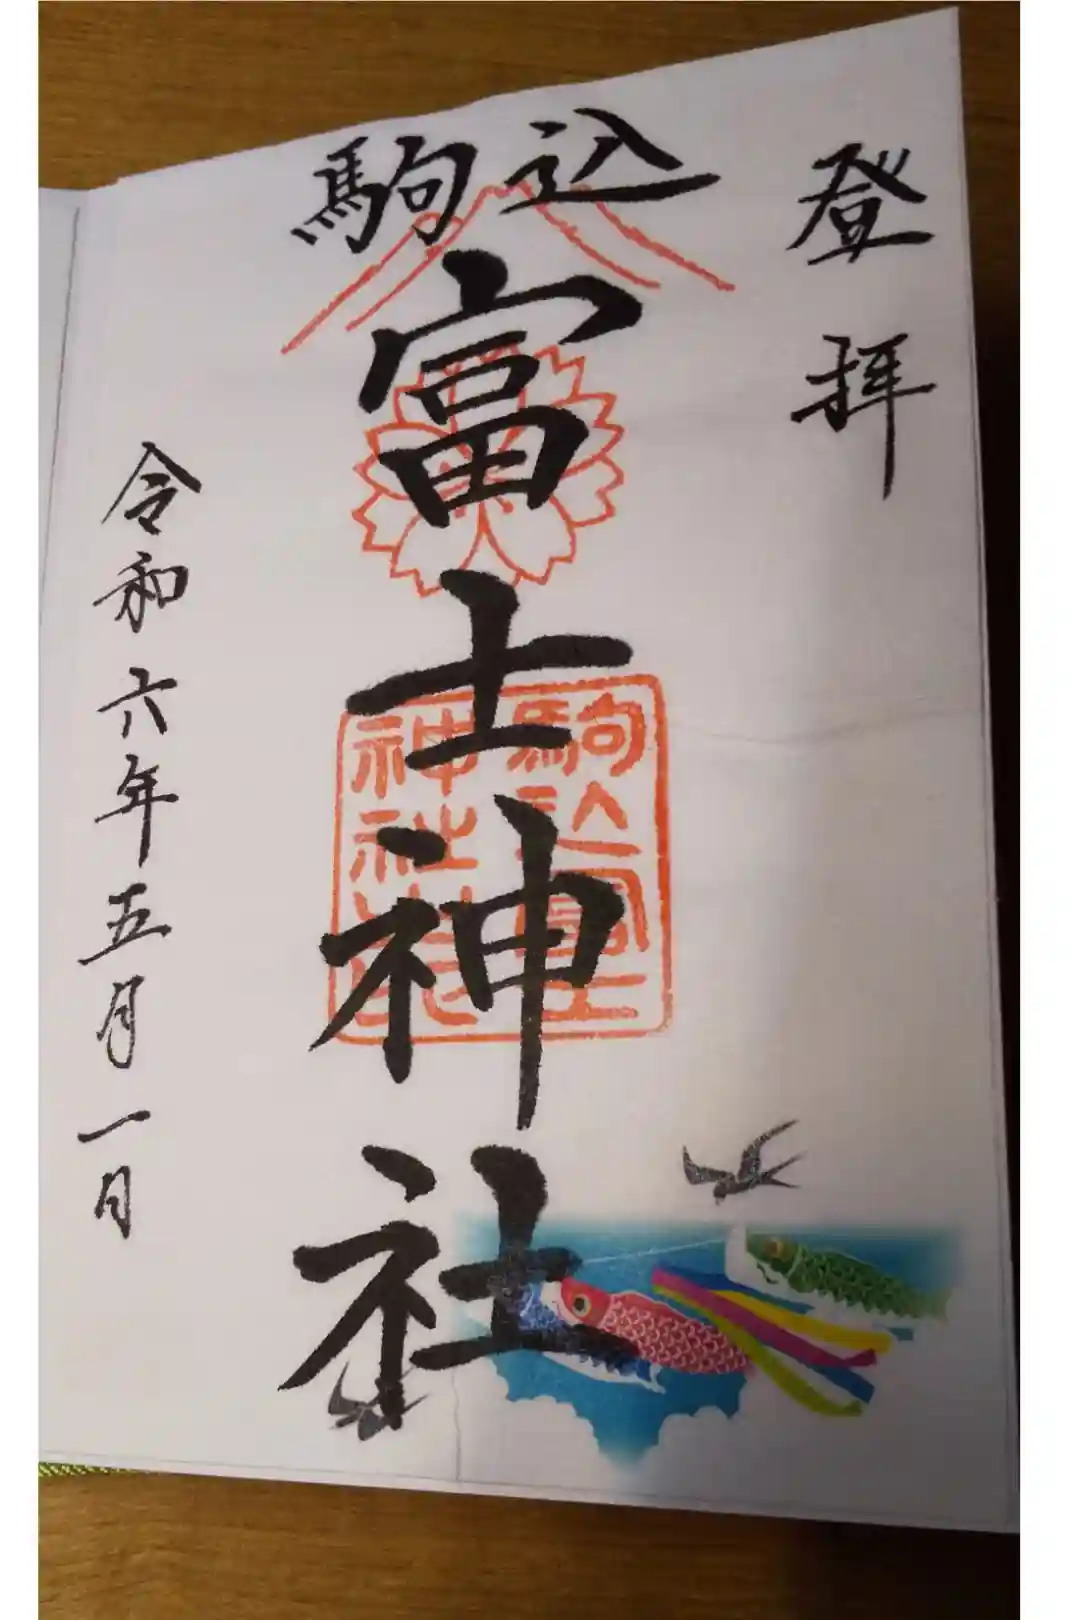 登拝
駒込
富士神社
駒込富士
神社
令和六年五月一日